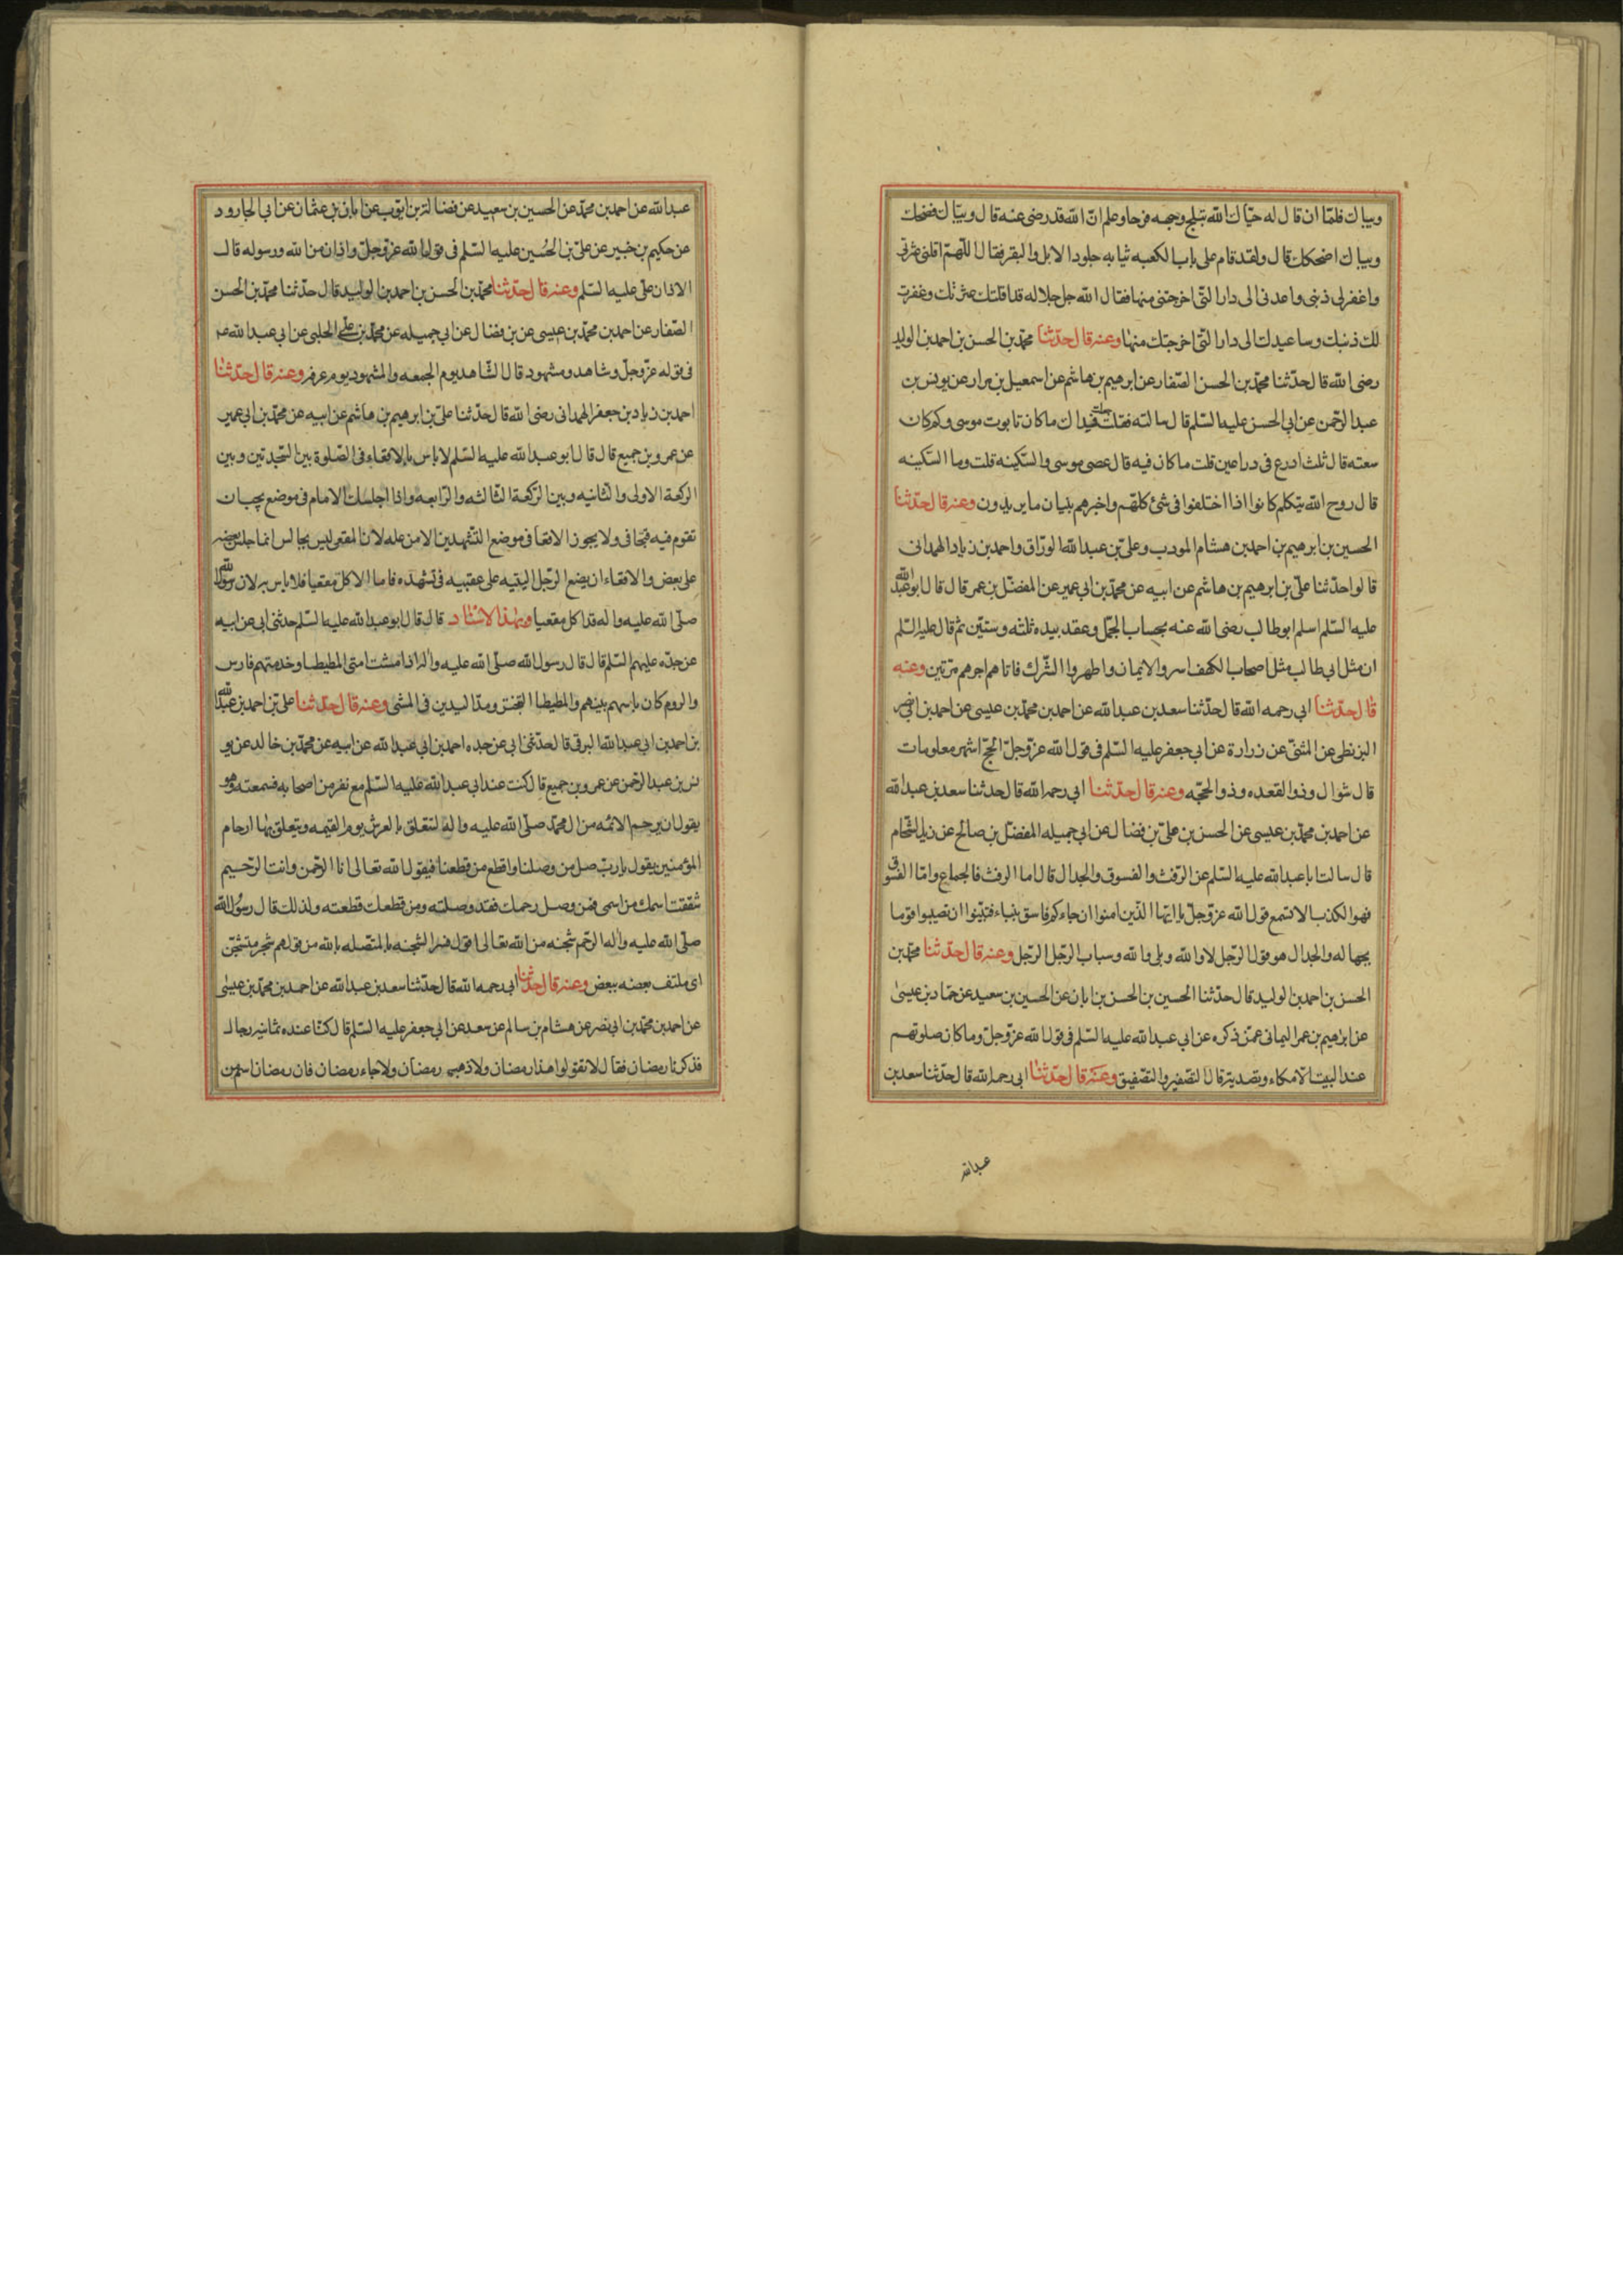 وبياك فلمّا ان قال له حيّاك الله تبلج وجهه فرحا وعلم انّ الله قد رضى عنه قال وبيّاك فضحك
وبياك اضحكك قال ولقد قام على باب الكعبه ثيابه جلود الابل والبقر فقال اللّهمّ اقلنى عثرتى
واغفر لى ذنبى واعدنى الى دار التّى اخرجتنى منها فقال الله جل جلاله قد اقلتك عثرتك وغفرت
لك ذنبك وساعيدك الى دار التّى اخرجتك منها وعنه قال حدّثنا محمّد بن الحسن بن احمد بن الوليد
رضى الله قال حدّثنا محمّد بن الحسن الصّفار عن ابرهيم بن هاشم عن اسمعيل بن مرار عن يونس بن
عبد الرّحمن عن ابى الحسن عليه السّلم قال سالته فقلت جعلت فيداك ما كان تابوت موسى وكم كان
سعته قال ثلث ادرع فى دراعين قلت ما كان فيه قال عصى موسى والسّكينه قلت وما السّكينه
قال روح الله يتكلم كانوا اذا اختلفوا فى شئ كلّهم واخبرهم ببيان ما يريدون وعنه قال حدّثنا
الحسين بن ابرهيم بن احمد بن هشام المودب وعلى بن عبد الله الورّاق واحمد بن زياد الهمدانى
قالوا حدّثنا علىّ بن ابرهيم بن هاشم عن ابيه عن محمّد بن ابى عمير عن المفضّل بن عمر قال قال ابو عبد الله
عليه السّلم اسلم ابو طالب رضى الله عنه بحساب الجمّل وعقد بيده ثلثه وستّين ثم قال عليه السّلم
ان مثل ابى طالب مثل اصحاب الكهف اسروا الايمان واظهروا الشّرك فاتاهم اجرهم مرّتين وعنه
قال حدّثنا ابى رحمه الله قال حدّثنا سعد بن عبد الله عن احمد بن محمّد بن عيسى عن احمد بن ابى نصر
البزنطى عن المثنّى عن زرارة عن ابى جعفر عليه السّلم فى قول الله عزّوجلّ الحجّ اشهر معلومات
قال شوال وذو القعده وذو الحجّه وعنه قال حدّثنا ابى رحمه الله قال حدثنا سعد بن عبد الله
عن احمد بن محمّد بن عيسى عن الحسن بن علىّ بن فضال عن ابى جميله المفضّل بن صالح عن زيد الشّحام
قال سالت ابا عبد الله عليه السّلم عن الرّفث والفسوق والجدال قال اما الرفث فالجماع وامّا الفسوق
فهو الكذب الا تسمع قول الله عزّوجلّ يا ايّها الّذين امنوا ان جاءكم فاسق بنباء فتبيّنوا ان تصيبوا قوما
بجهاله والجدال هو قول الرّجل لا والله وبلى والله وسباب الرّجل الرّجل وعنه قال حدّثنا محمّد بن
الحسن بن احمد بن الوليد قال حدّثنا الحسين بن الحسن بن ابان عن الحسين بن سعيد عن حمّاد بن عيسى
عن ابرهيم بن عمر اليمانى عمّن ذكره عن ابى عبد الله عليه السّلم فى قول الله عزّوجلّ وما كان صلوتهم
عند البيت الّا مكاء وتصدية قال التصفير والتصفيق وعنه قال حدّثنا ابى رحمه الله قال حدّثنا سعد بن
عبدالله
عبد الله عن احمد بن محمّد عن الحسين بن سعيد عن فضالة بن ايّوب عن ابان بن عثمان عن ابى الجارود
عن حكيم بن جبير عن علىّ بن الحُسين عليه السّلم فى قول الله عزّوجلّ واذان من الله ورسوله قال
الاذان علىّ عليه السّلم وعنه قال حدّثنا محمّد بن الحسن بن احمد بن الوليد قال حدّثنا محمّد بن الحسن
الصّفار عن احمد بن محمّد بن عيسى عن بن فضال عن ابى جميله عن محمّد بن على الحلبى عن ابى عبد الله عـ
فى قوله عزّوجلّ وشاهد ومشهود قال الشّاهد يوم الجمعه والمشهود يوم عرفه وعنه قال حدّثنا
احمد بن زياد بن جعفر الهمدانى رضى الله قال حدّثنا علىّ بن ابرهيم بن هاشم عن ابيه عن محمّد بن ابى عمير
عن عمرو بن جميع قال قال ابو عبد الله عليه السّلم لا باس بالاقعاء فى الصّلوة بين السّجدتين وبين
الركعة الاولى والثانيه وبين الرّكعة الثالثه والرّابعه واذا اجلسك الامام فى موضع يجب ان
تقوم فيه فتجافى ولا يجوز الاقعاء فى موضع التّشهدين الا من عله لان المقعى ليس بجالس انما جلس بعضه
على بعض والاقعاء ان يضع الرّجل اليتيه على عقبيه فى تشهده فاما الاكل مقعيا فلا باس به لان رسول الله
صلّى الله عليه واله قد اكل مقعيا وبهذا الاسناد قال قال ابو عبد الله عليه السّلم حدثنى ابى عن ابيه
عن جدّه عليهم السّلم قال قال رسول الله صلّى الله عليه واله اذا مشت امتى المطيطا وخدمتهم فارس
والروم كان باسهم بينهم والمطيطا التبختر ومدّ اليدين فى المشى وعنه قال حدّثنا علىّ بن احمد بن عبد الله
بن احمد بن ابى عبد الله البرقى قال حدّثنى ابى عن جده احمد بن ابى عبد الله عن ابيه عن محمّد بن خالد عن يو
نس بن عبد الرّحمن عن عمرو بن جميع قال كنت عند ابى عبد الله عليه السّلم مع نفر من اصحابه فسمعته وهو
يقول ان رحم الائمّه من ال محمّد صلّى الله عليه واله لتتعلق بالعرش يوم القيمه ويتعلق بها ارحام
المؤمنين يقول يا ربّ صل من وصلنا واقطع من قطعنا فيقول الله تعالى انا الرّحمن وانت الرّحيم
شققت اسمك من اسمى فمن وصل رحمك فقد وصلته ومن قطعك قطعته ولذلك قال رسول الله
صلّى الله عليه واله الرّحم شجنه من الله تعالى اقول فسر الشجنه بالمتصله بالله من قولهم شجر متشجّن
اى ملتف بعضه ببعض وعنه قال حدّثنا ابى رحمه الله قال حدّثنا سعد بن عبد الله عن احمد بن محمّد بن عيسى
عن احمد بن محمّد بن ابى نصر عن هشام بن سالم عن سعد عن ابى جعفر عليه السّلم قال كنّا عنده ثمانيه رجال
فذكرنا رمضان فقال لا تقولوا هذا رمضان ولا ذهب رمضان ولا جاء رمضان فان رمضان اسم من